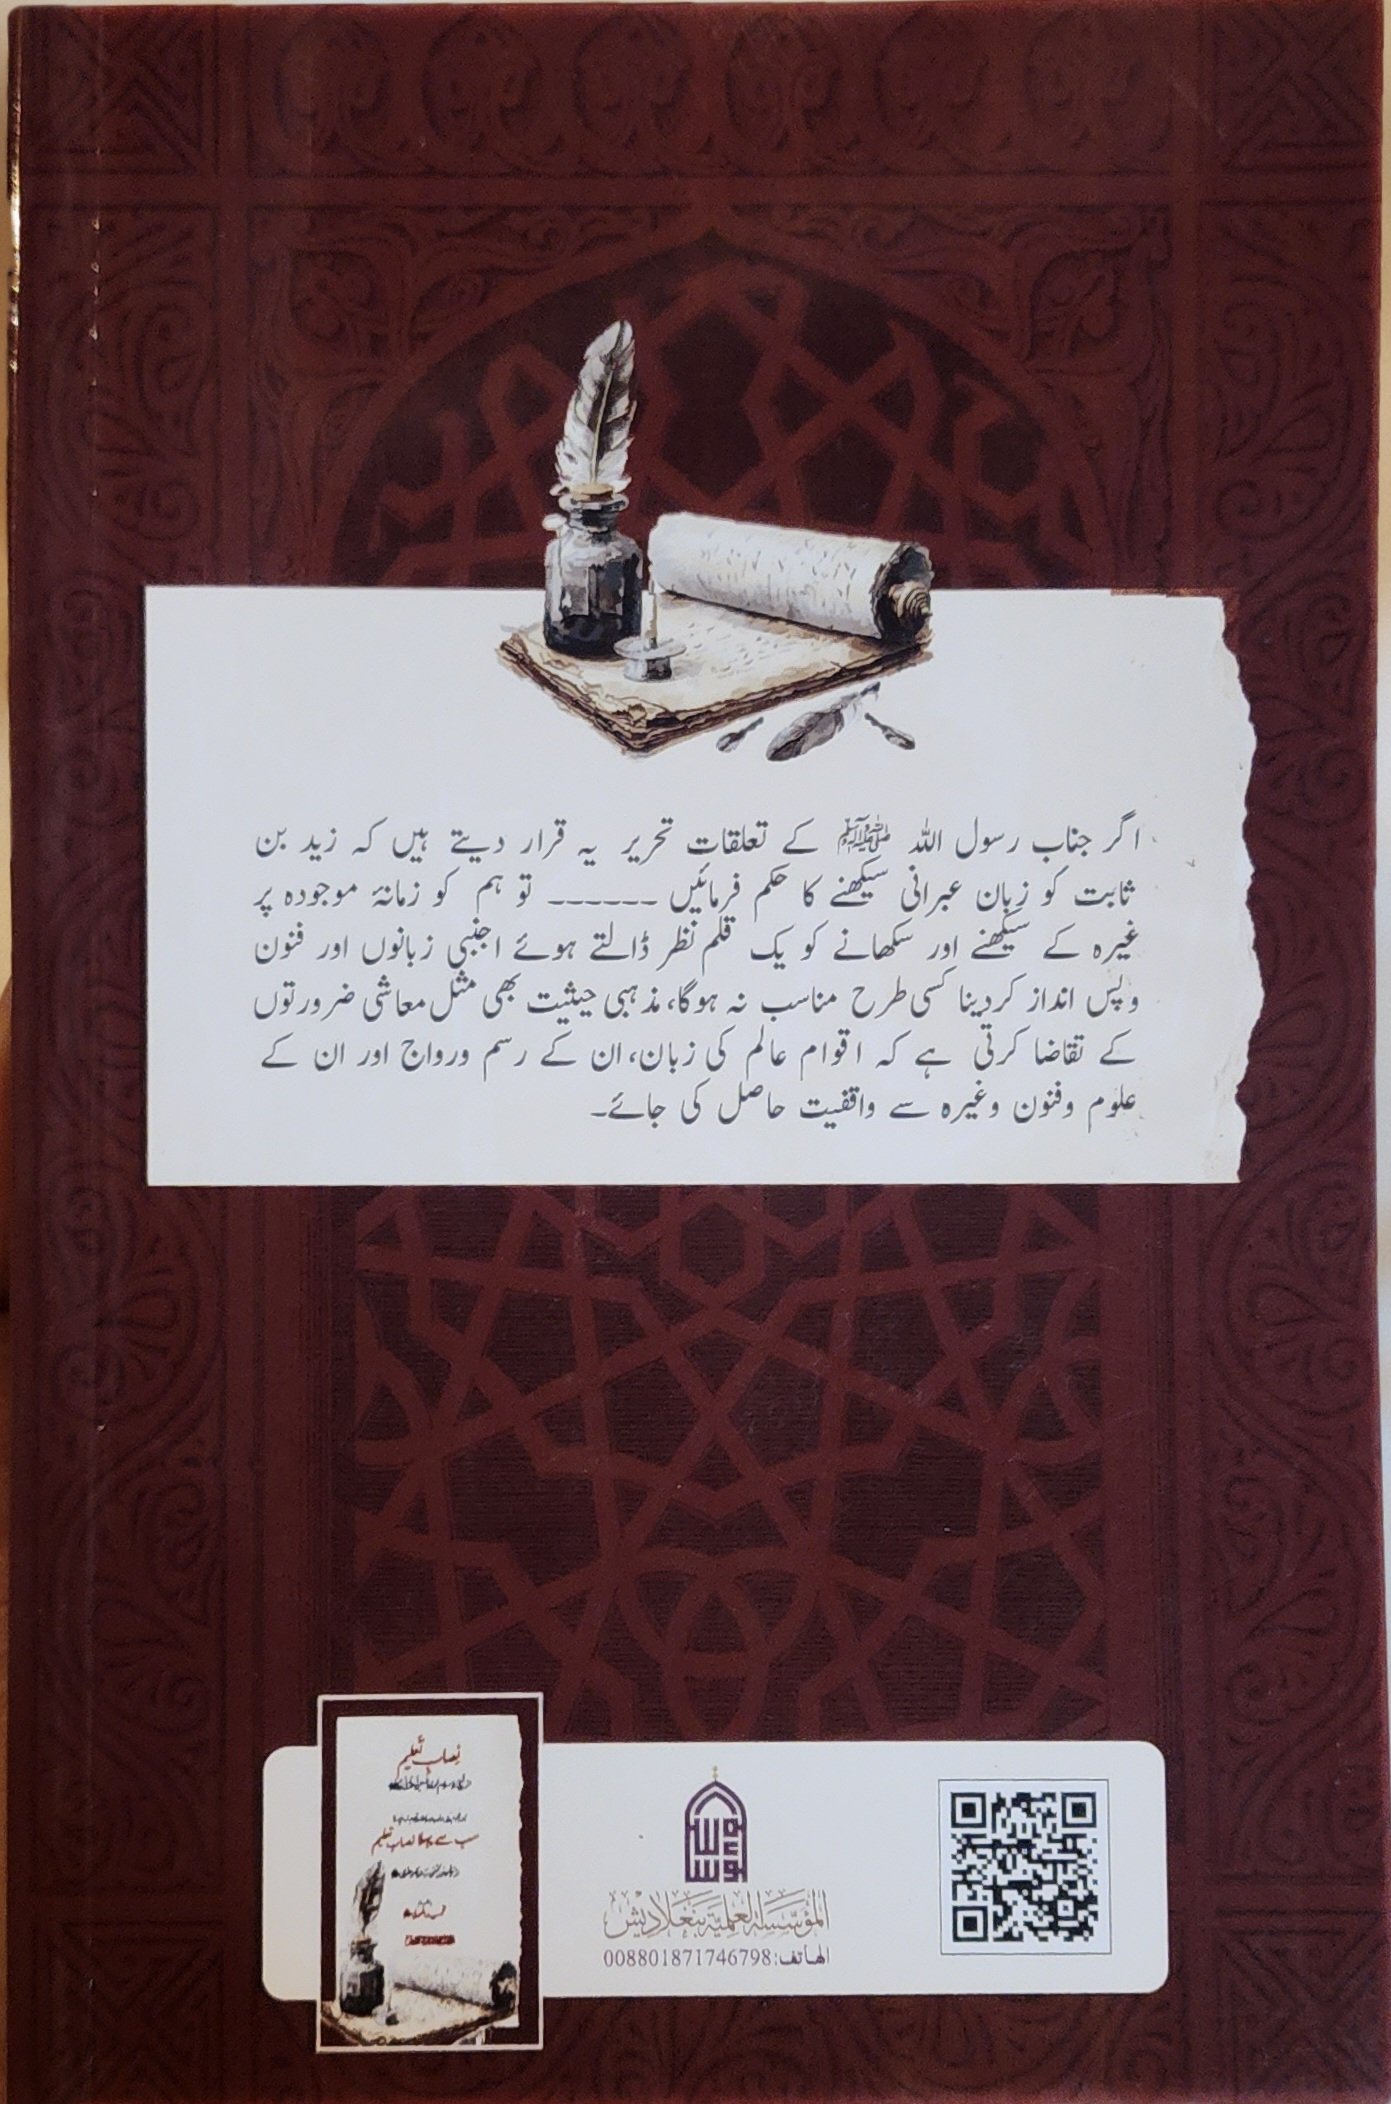 اگر جناب رسول اللہ ﷺ کے تعلقات تحریر یہ قرار دیتے ہیں کہ زید بن
ثابت کو زبان عبرانی سیکھنے کا حکم فرمائیں ------ تو ہم کو زمانۂ موجودہ پر
غیرہ کے سیکھنے اور سکھانے کو یک قلم نظر ڈالتے ہوئے اجنبی زبانوں اور فنون
و پس انداز کردینا کسی طرح مناسب نہ ہوگا، مذہبی حیثیت بھی مثل معاشی ضرورتوں
کے تقاضا کرتی ہے کہ اقوام عالم کی زبان، ان کے رسم ورواج اور ان کے
علوم وفنون وغیرہ سے واقفیت حاصل کی جائے۔
نصاب تعلیم
سب سے پہلا نصاب تعلیم
المؤسسة العلمية بنغلاديش
الهاتف: 008801871746798